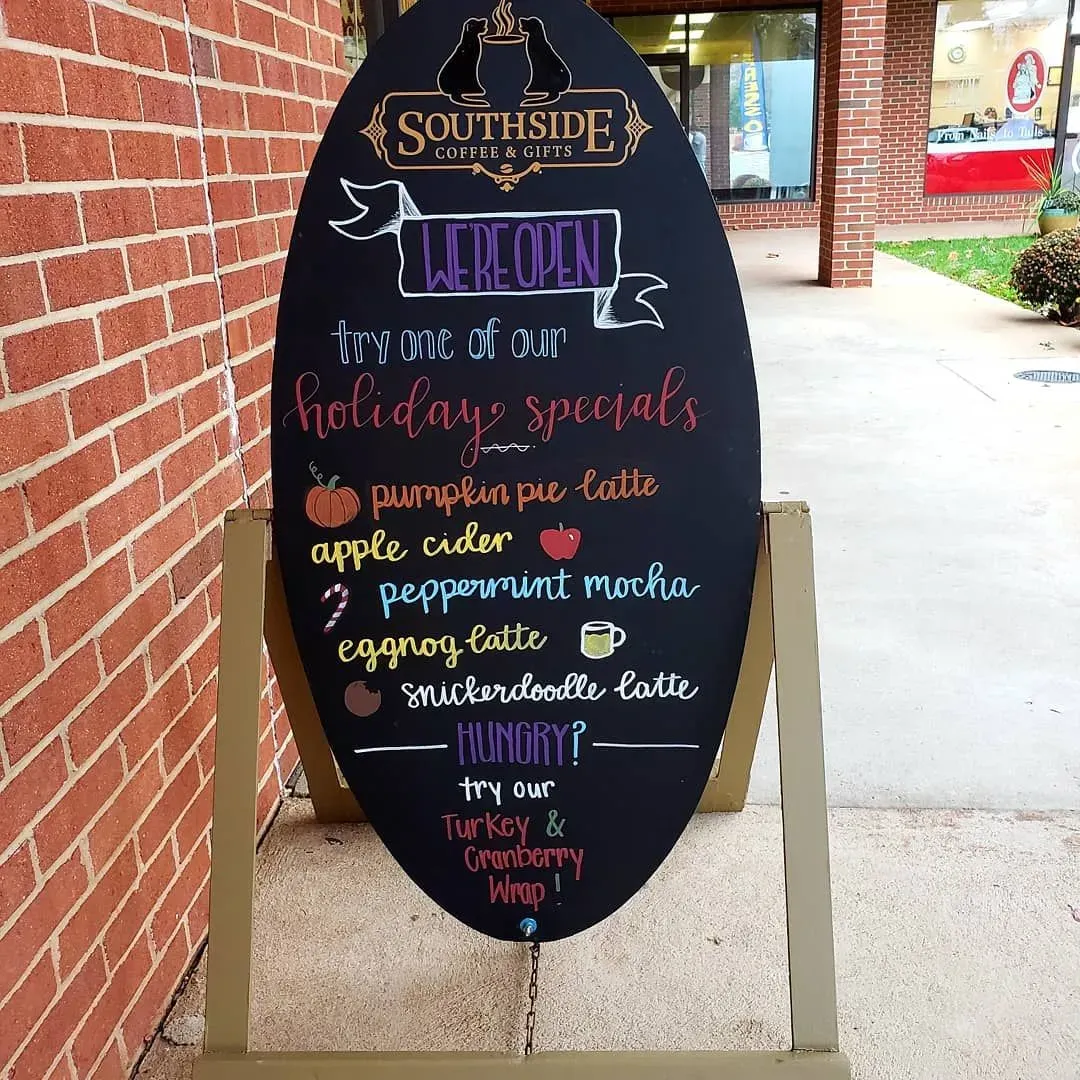 SOUTHSIDE
COFFEE & GIFTS
WE'RE OPEN
try one of our
holiday specials
pumpkin pie latte
apple cider
peppermint mocha
eggnog latte
snickerdoodle latte
HUNGRY?
try our
Turkey &
Cranberry
Wrap!
From Nails to Tails